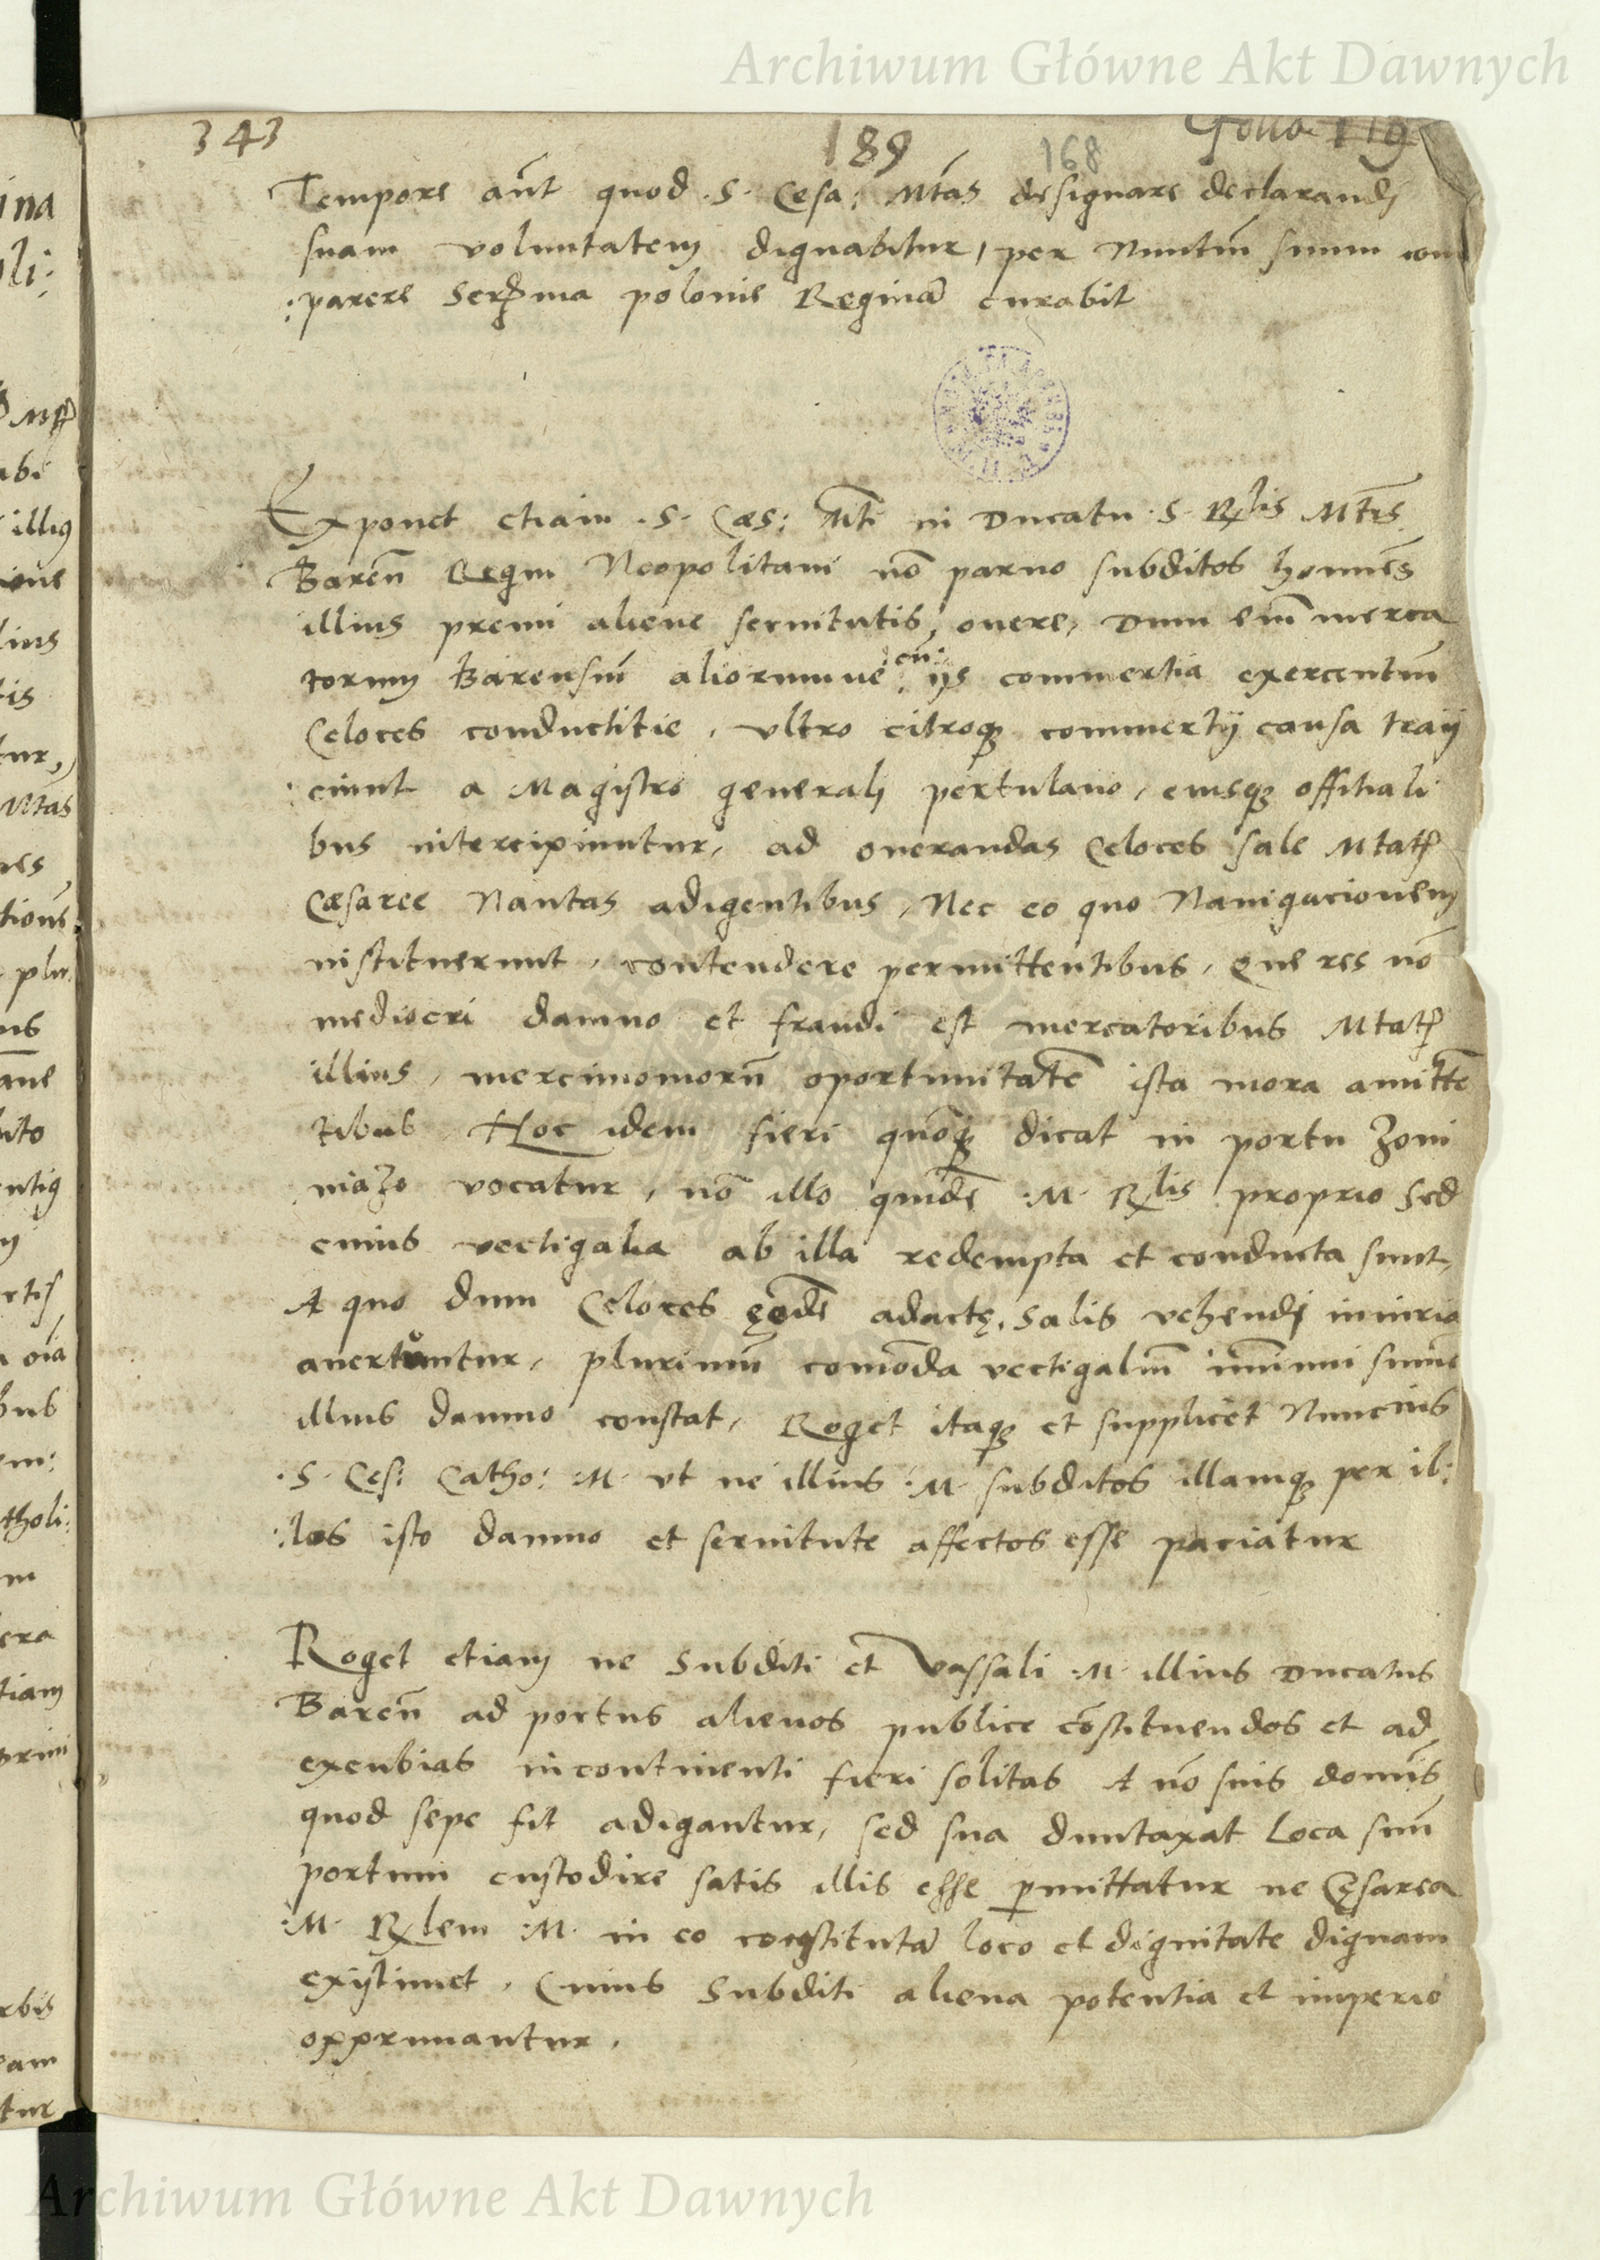 Archiwum Główne Akt Dawnych
343 189 168 Folio 119
Tempore aūt quod .S. Cesa: Mtas designare declarandi
suam voluntatem dignabitur, per Nuntiū suum com
:parere Serma polonie Reginā curabit
Exponet etiam .S. Cæs: Mti in Ducatu .S. Rlis Mtis
Bareñ Regni Neopolitani nō paruo subditos homīes
illius premi aliene seruitutis, onere, Dum eīm merca
torum Barensiū aliorumue cū: ijs commertia exercentiū
Celoces conductitie, vltro citroqꝫ commertij causa traij
:ciunt a Magistro generali portulano, eiusqꝫ offitiali
bus intercipiuntur, ad onerandas Celoces sale Mtatꝭ
Cæsaree Nautas adigentibus, Nec eo quo Nauigacionem
instituerunt, contendere permittentibus, Que res nō
mediocri damno et fraudi est mercatoribus Mtatꝭ
illius, mercimoniorū oportunitatē ista mora amittē
tibus. Hoc idem fieri quōqꝫ dicat in portu Joui
niazo vocatur, nō illo quidē .M. Rlis proprio sed
cuius vectigalia ab illa redempta et conducta sunt,
A quo dum Celoces ęędē adactę, salis vehendi iniuria
auertuntur, plurimū comoda vectigaliū imminui sum̄e
illius damno constat, Roget itaqꝫ et supplicet Nuncius
.S. Ces: Catho: .M. vt ne illius .M. subditos illamqꝫ per il:
:los isto damno et seruitute affectos esse paciatur
Roget etiam ne Subditi et Vassali .M. illius Ducatus
Bareñ ad portus alienos publice cōstituendos et ad
excubias incontinenti fieri solitas A nō suis domīs
quod sepe fit adigantur, sed sua duntaxat Loca suū
portum custodire satis illis esse ꝑmittatur ne Cęsarea
.M. Rlem .M. in eo constitutā loco et dignitate dignam
existimet. Cuius Subditi aliena potentia et imperio
opprimantur.
Archiwum Główne Akt Dawnych